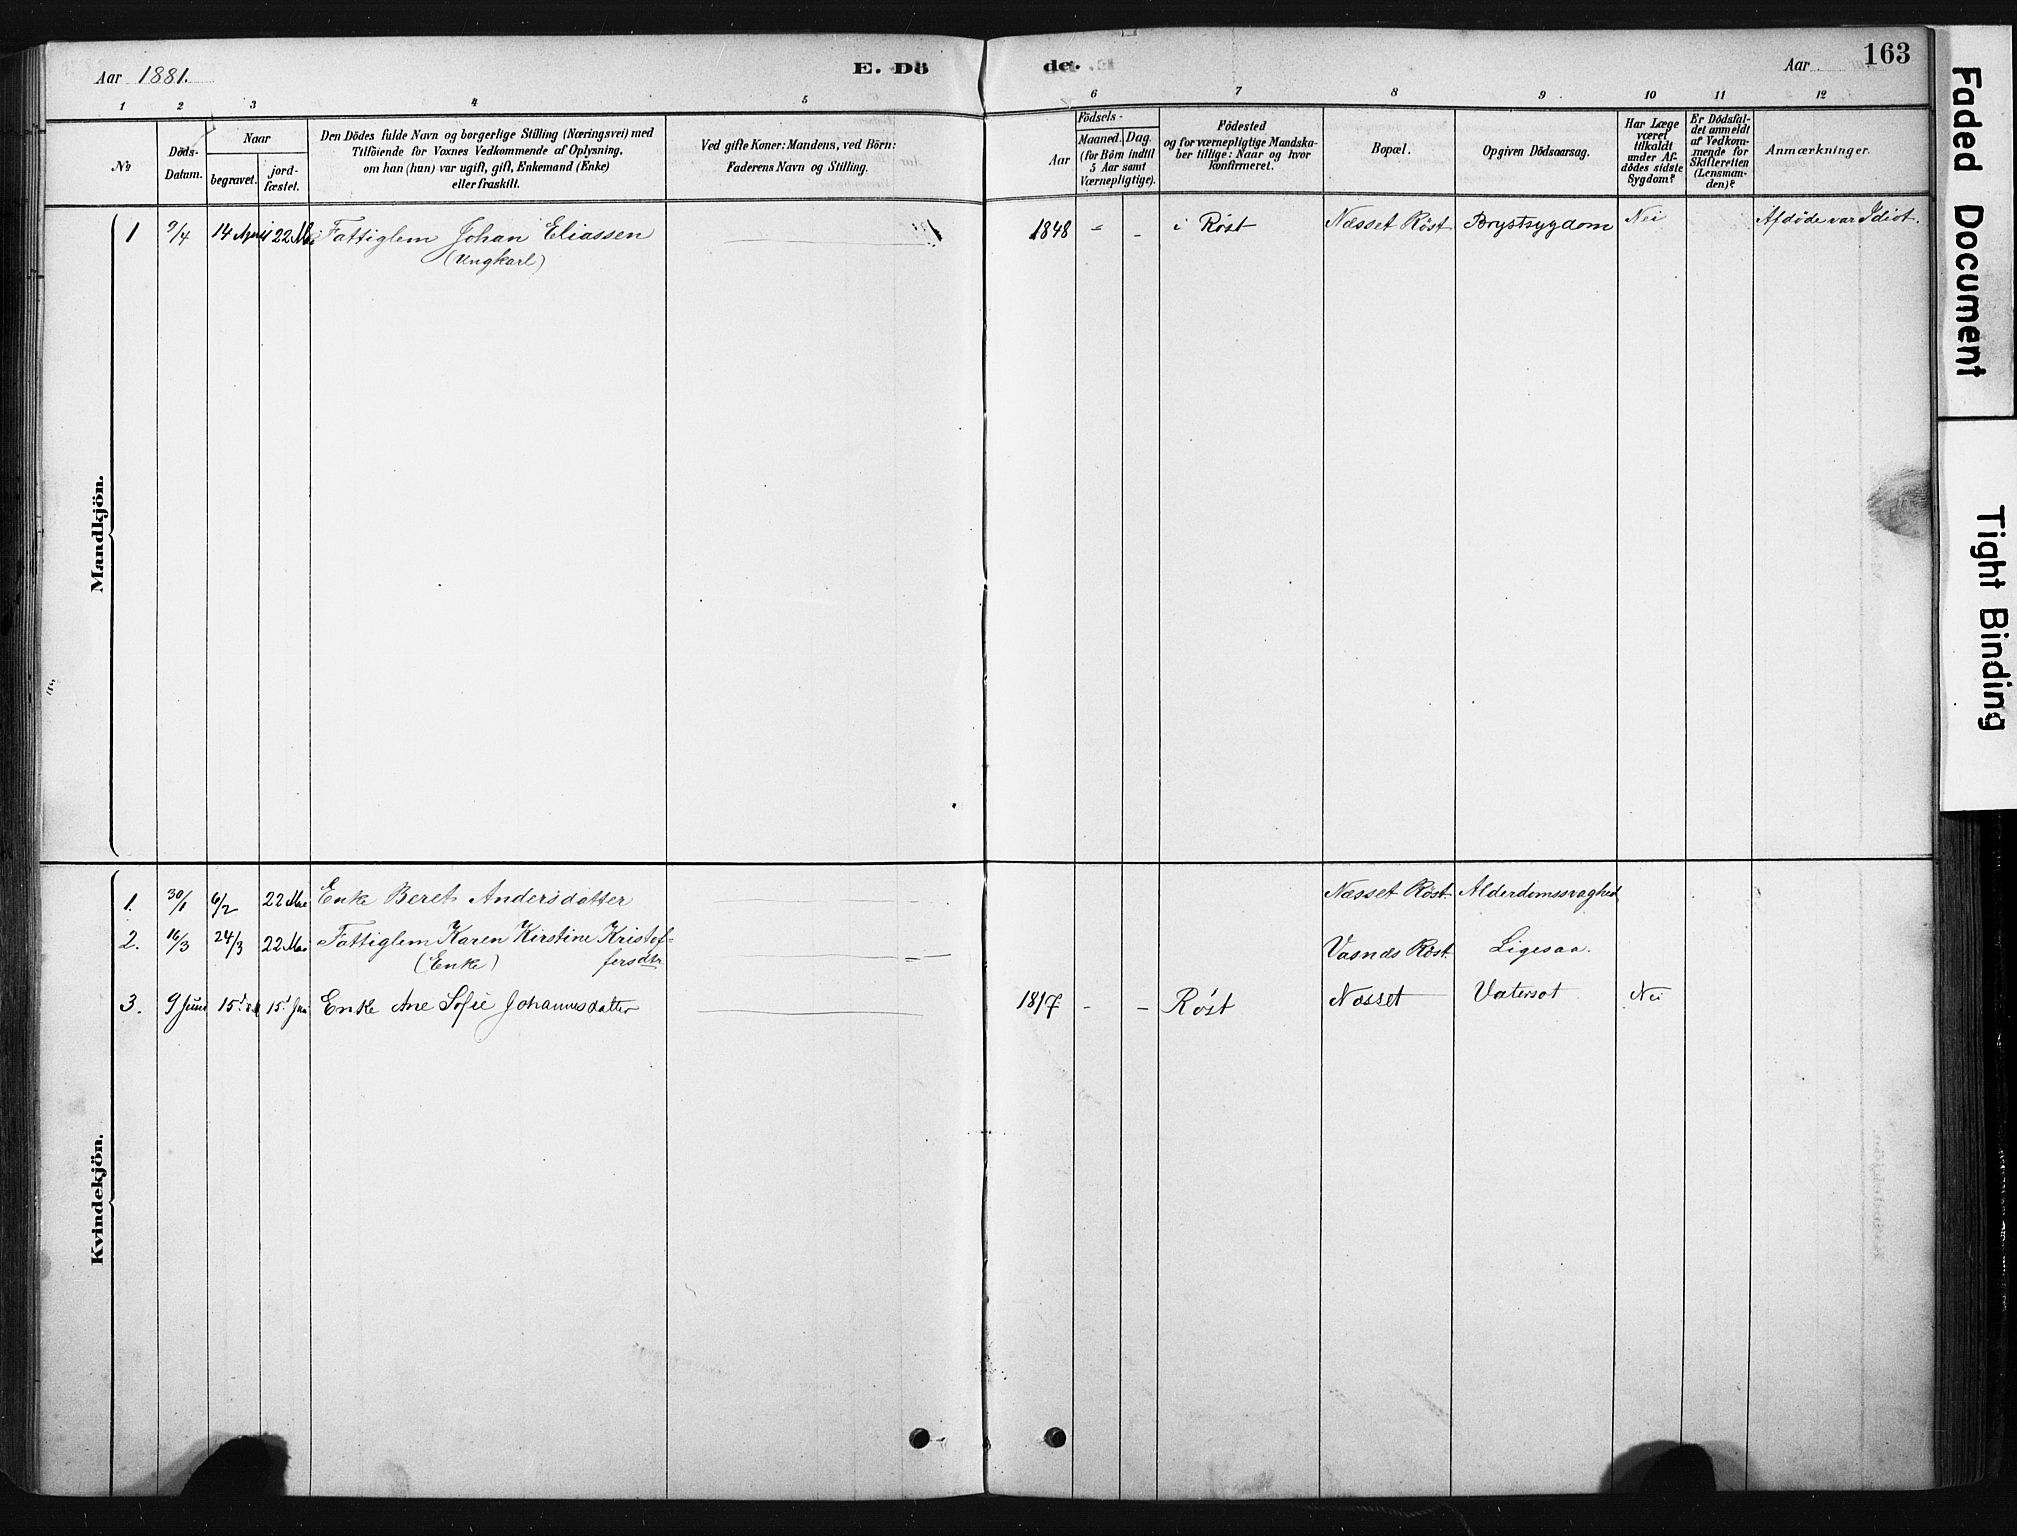 Aar 1881.
E. Dö
de.
Aar
163
1 2 3 4 5 6 7 8 9 10 11 12
No
Döds-
Datum.
Naar
begravet.
jord-
fæstet.
Den Dödes fulde Navn og borgerlige Stilling (Næringsvei) med
Tilföiende for Voxnes Vedkommende af Oplysning,
om han (hun) var ugift, gift, Enkemand (Enke)
eller fraskilt.
Ved gifte Koner: Mandens, ved Börn:
Faderens Navn og Stilling.
Födsels-
Aar
Maaned. Dag.
(for Börn indtil
5 Aar samt
Værnepligtige).
Födested
og for værnepligtige Mandska-
ber tillige: Naar og hvor
konfirmeret.
Bopæl.
Opgiven Dödsaarsag.
Har Læge
været
tilkaldt
under Af-
dödes sidste
Sygdom?
Er Dödsfal-
det anmeldt
af Vedkom-
mende for
Skifteretten
(Lensman-
den)?
Anmærkninger.
Mandkjön.
1 9/4 14 April 22 Mai Fattiglem Johan Eliassen 1848 - - i Röst Næsset Röst Brystsygdom Nei Afdöde var Idiot.
(Ungkarl)
Kvindekjön.
1. 30/1 6/2 22 Mai Enke Beret Andersdatter Næsset Röst. Alderdomssvaghed
2. 16/3 24/3 22 Mai Fattiglem Karen Kirstine Kristof- Vasnæs Röst. Ligesaa.
(Enke) fersdtr
3. 9 Juni 15 15 Jun Enke Ane Sofie Johannesdatter 1817 - - Röst Næsset Vatersot Nei
Faded Document
Tight Binding